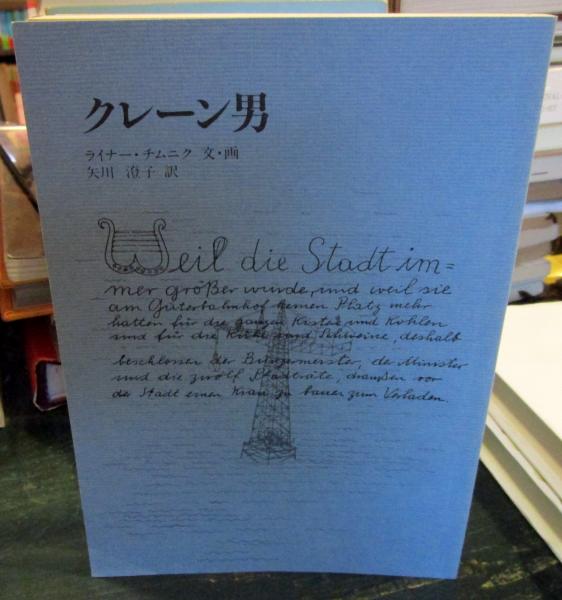 クレーン男
ライナー・チムニク 文・画
矢川 澄子 訳
Weil die Stadt im=
mer größer wurde, und weil sie
am Güterbahnhof keinen Platz mehr
hatten für die ganzen Kisten und Kohlen
und für die Kühe und Schweine, deshalb
beschlossen der Bürgermeister, der Minister
und die zwölf Stadträte, draußen vor
der Stadt einen Kran zu bauen zum Verladen.